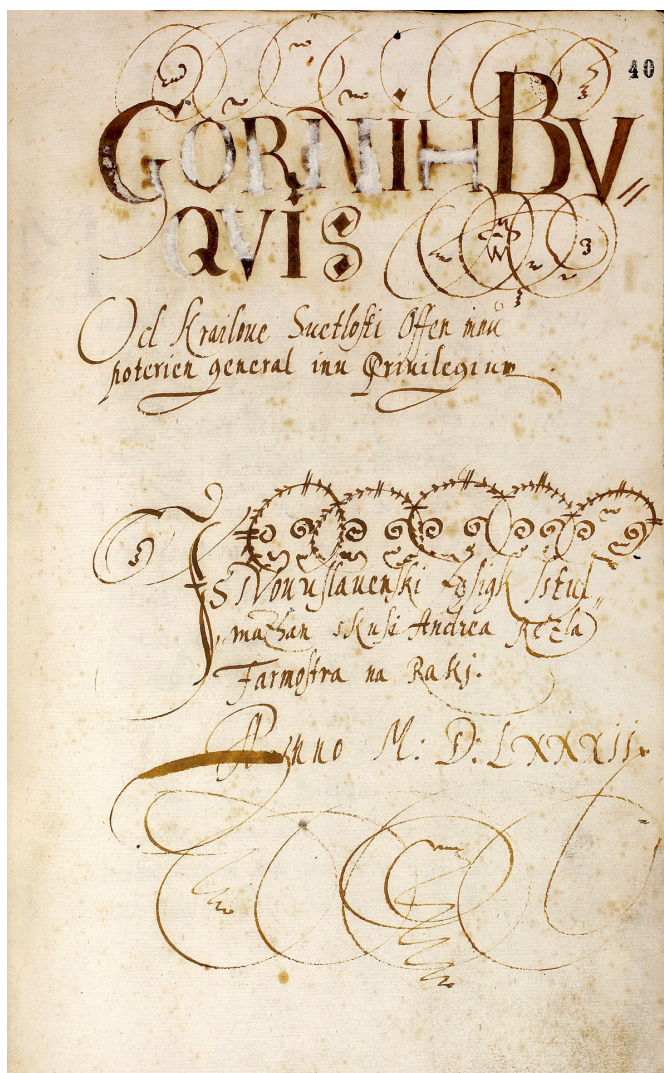 40
GORNIH BV〃
QVIS
Od Krailoue Suetlosti Offen inu
poterien general inu Priuilegium
IS Nouuslauenski Iesigk Istul〃
mazhan skusi Andrea Rezla
Farmostra na Raki.
Anno M: D: LXXXII.